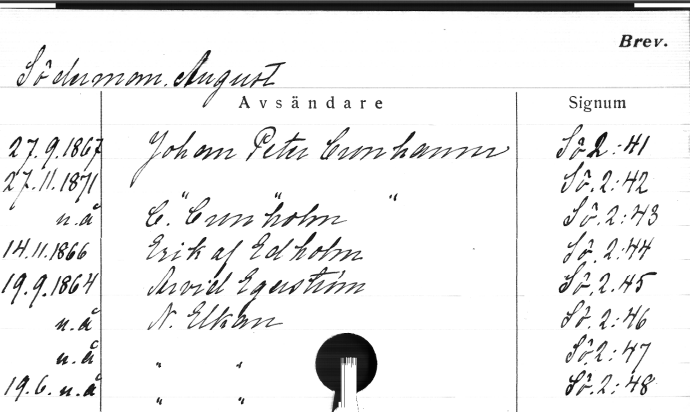 Brev.
Söderman. August
Avsändare Signum
27.9.1867 Johan Peter Cronhamn Sö 2:41
27.11.1871 " " " Sö. 2:42
u.å C. Cronholm Sö. 2:43
14.11.1866 Erik af Edholm Sö. 2:44
19.9.1864 Arvid Egerström Sö. 2.45
u.å N. Elkan Sö. 2:46
u.å " " Sö. 2:47
19.6. u.å " " Sö. 2:48